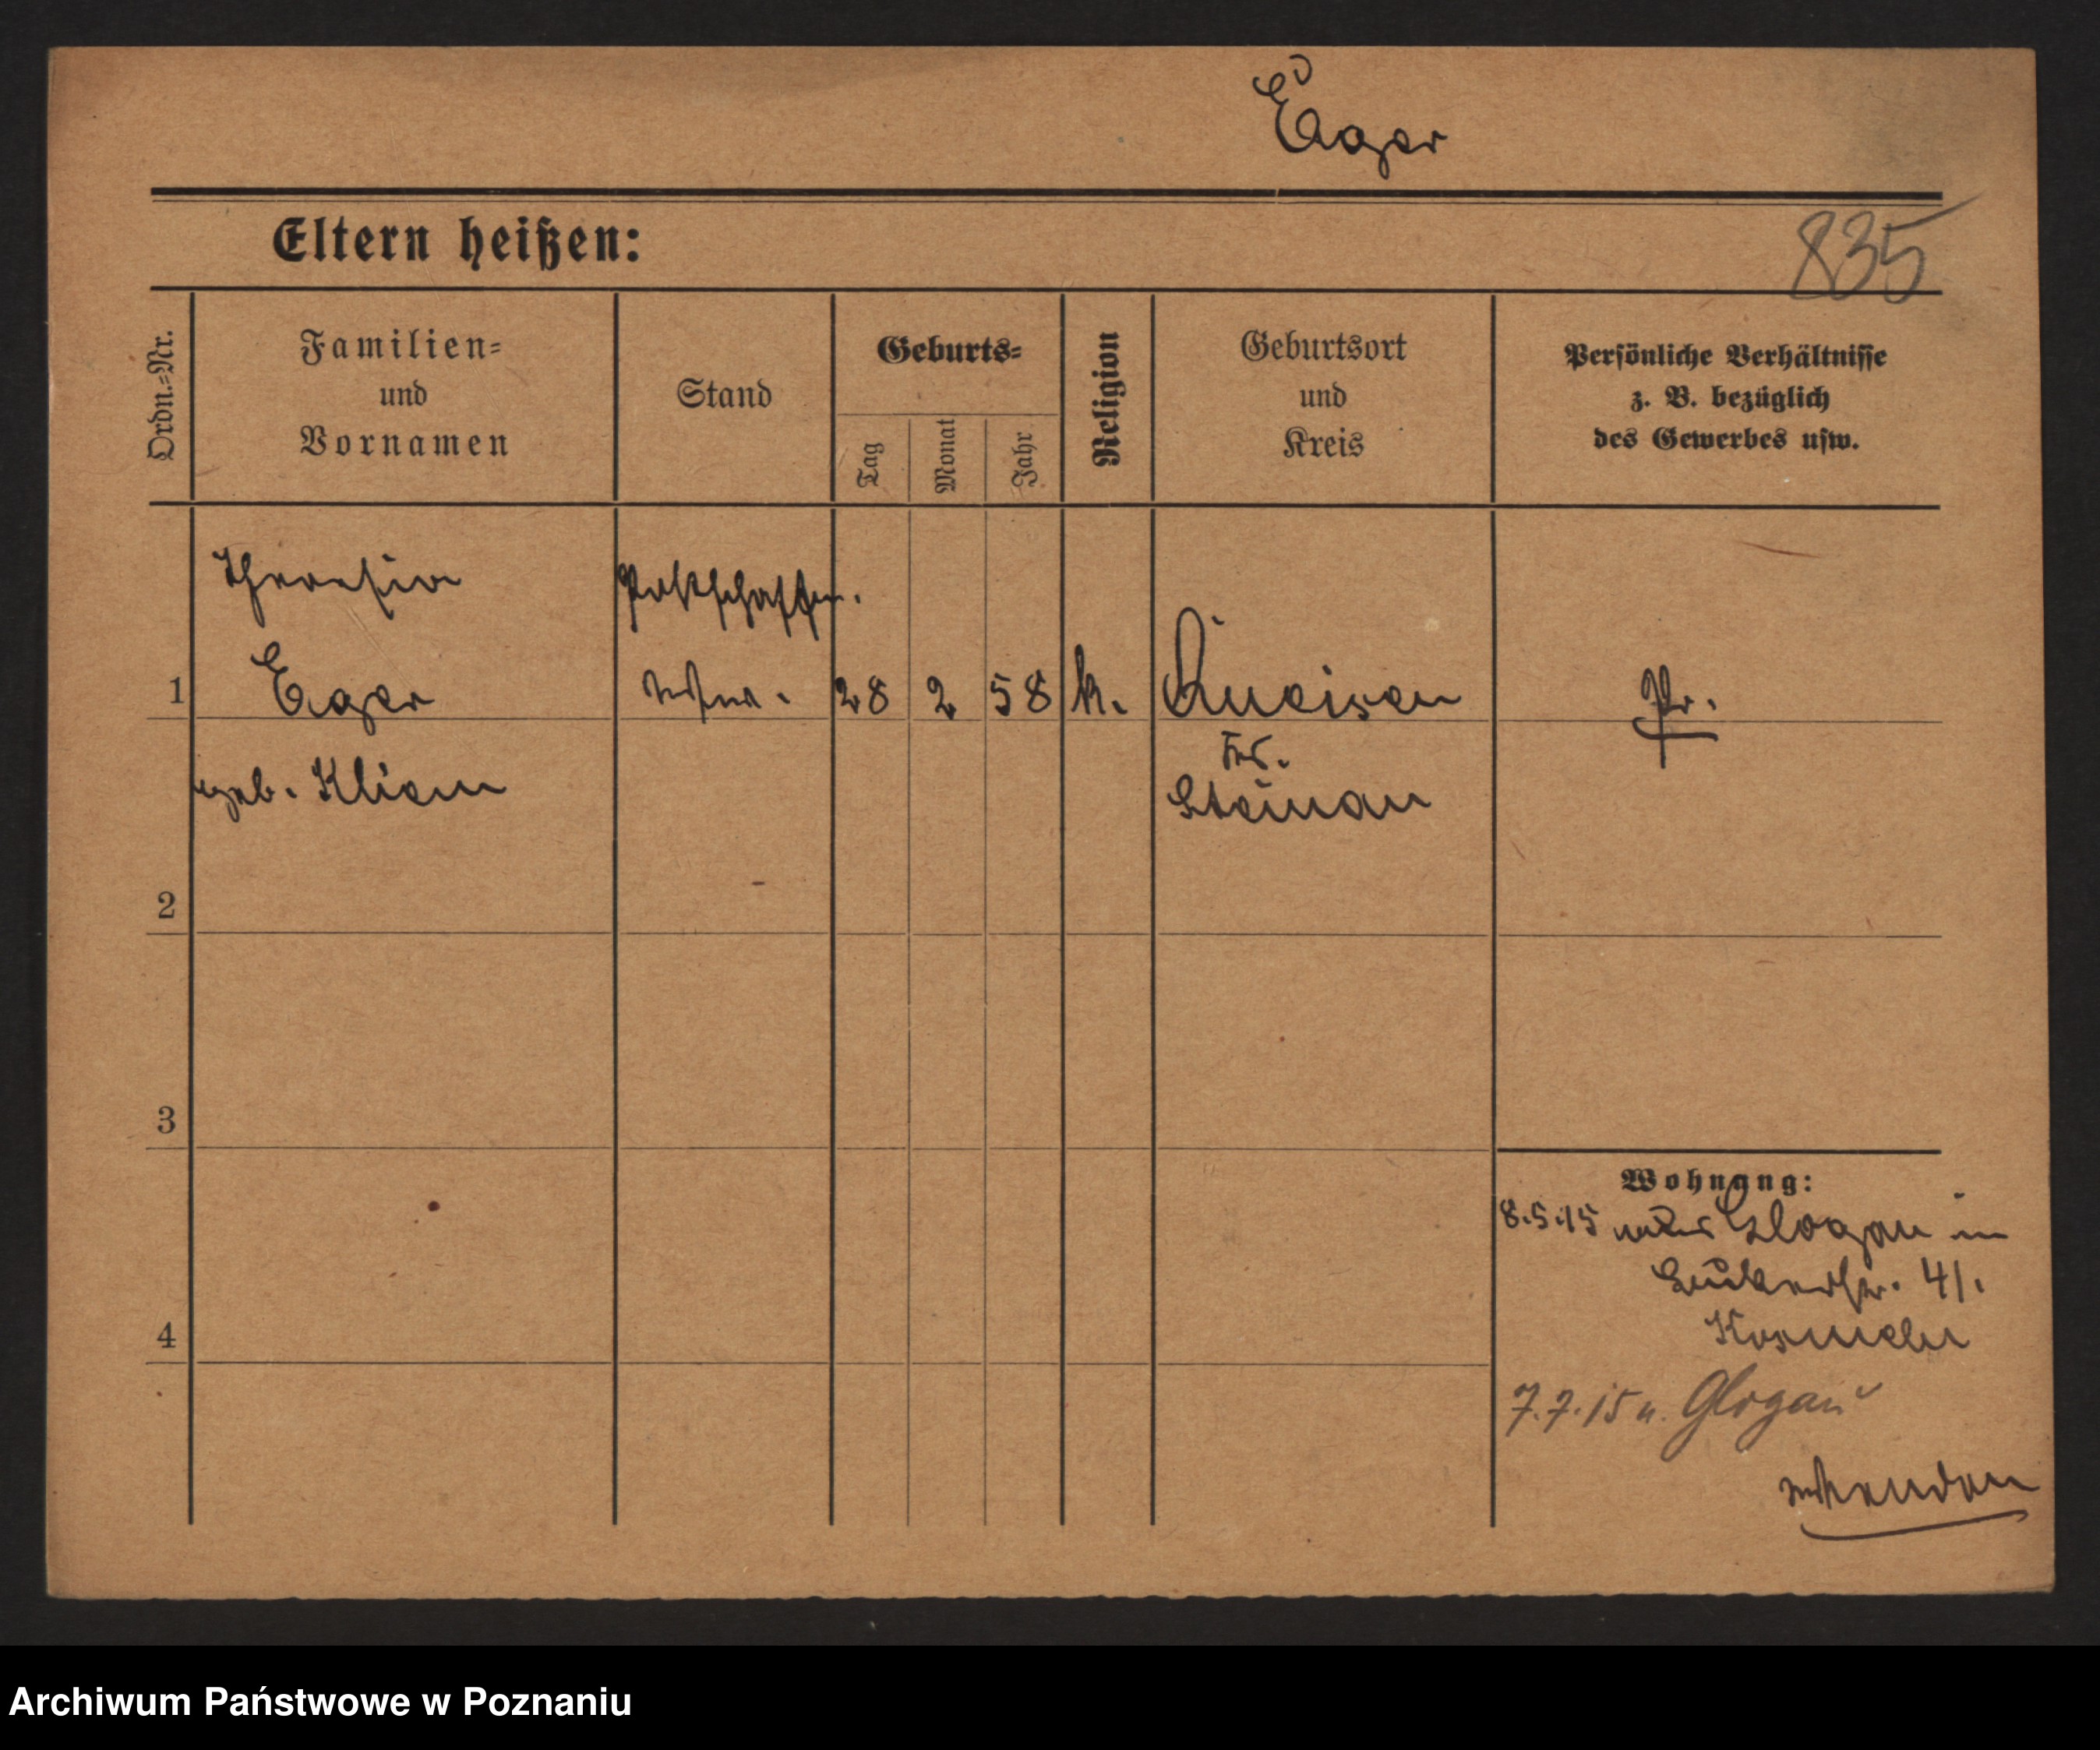 Eger
Eltern heißen:
835
Ordn.=Nr.
Familien=
und
Vornamen
Stand
Geburts=
Tag
Monat
Jahr
Religion
Geburtsort
und
Kreis
Persönliche Verhältnisse
z. B. bezüglich
des Gewerbes usw.
Theresia
Postschaffn.
1
Eger
28
2
58
k.
Pr.
geb. Kliem
Krs.
Steinau
2
3
Wohnung:
8.5.15
Glogau
41.
4
7.7.15 n. Glogau
Archiwum Państwowe w Poznaniu